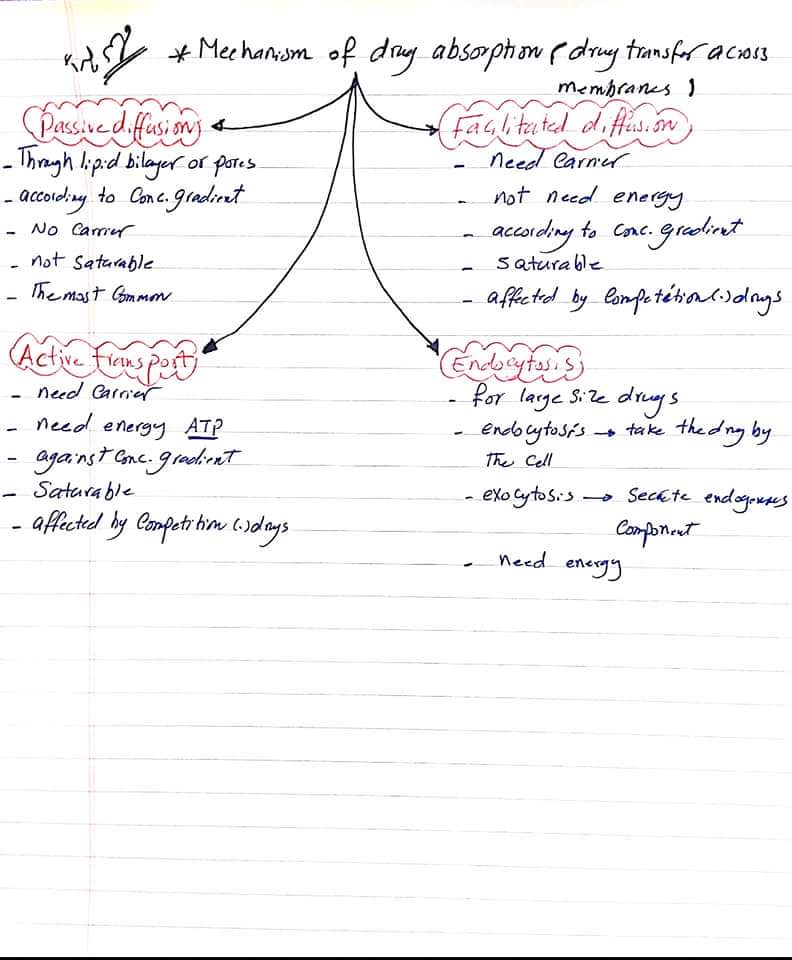 * Mechanism of drug absorption ( drug transfer across
membranes )
Passive diffusion
- Through lipid bilayer or pores
- according to Conc. gradient
- No Carrier
- not Saturable
- The most Common
Facilitated diffusion
- need Carrier
- not need energy
- according to Conc. gradient
- Saturable
- affected by Competition (.) drugs
Active transport
- need Carrier
- need energy ATP
- against Conc. gradient
- Saturable
- affected by Competition (.) drugs
Endocytosis
- for large size drugs
- endocytosis → take the drug by
The Cell
- exocytosis → Secrete
Component
- need energy